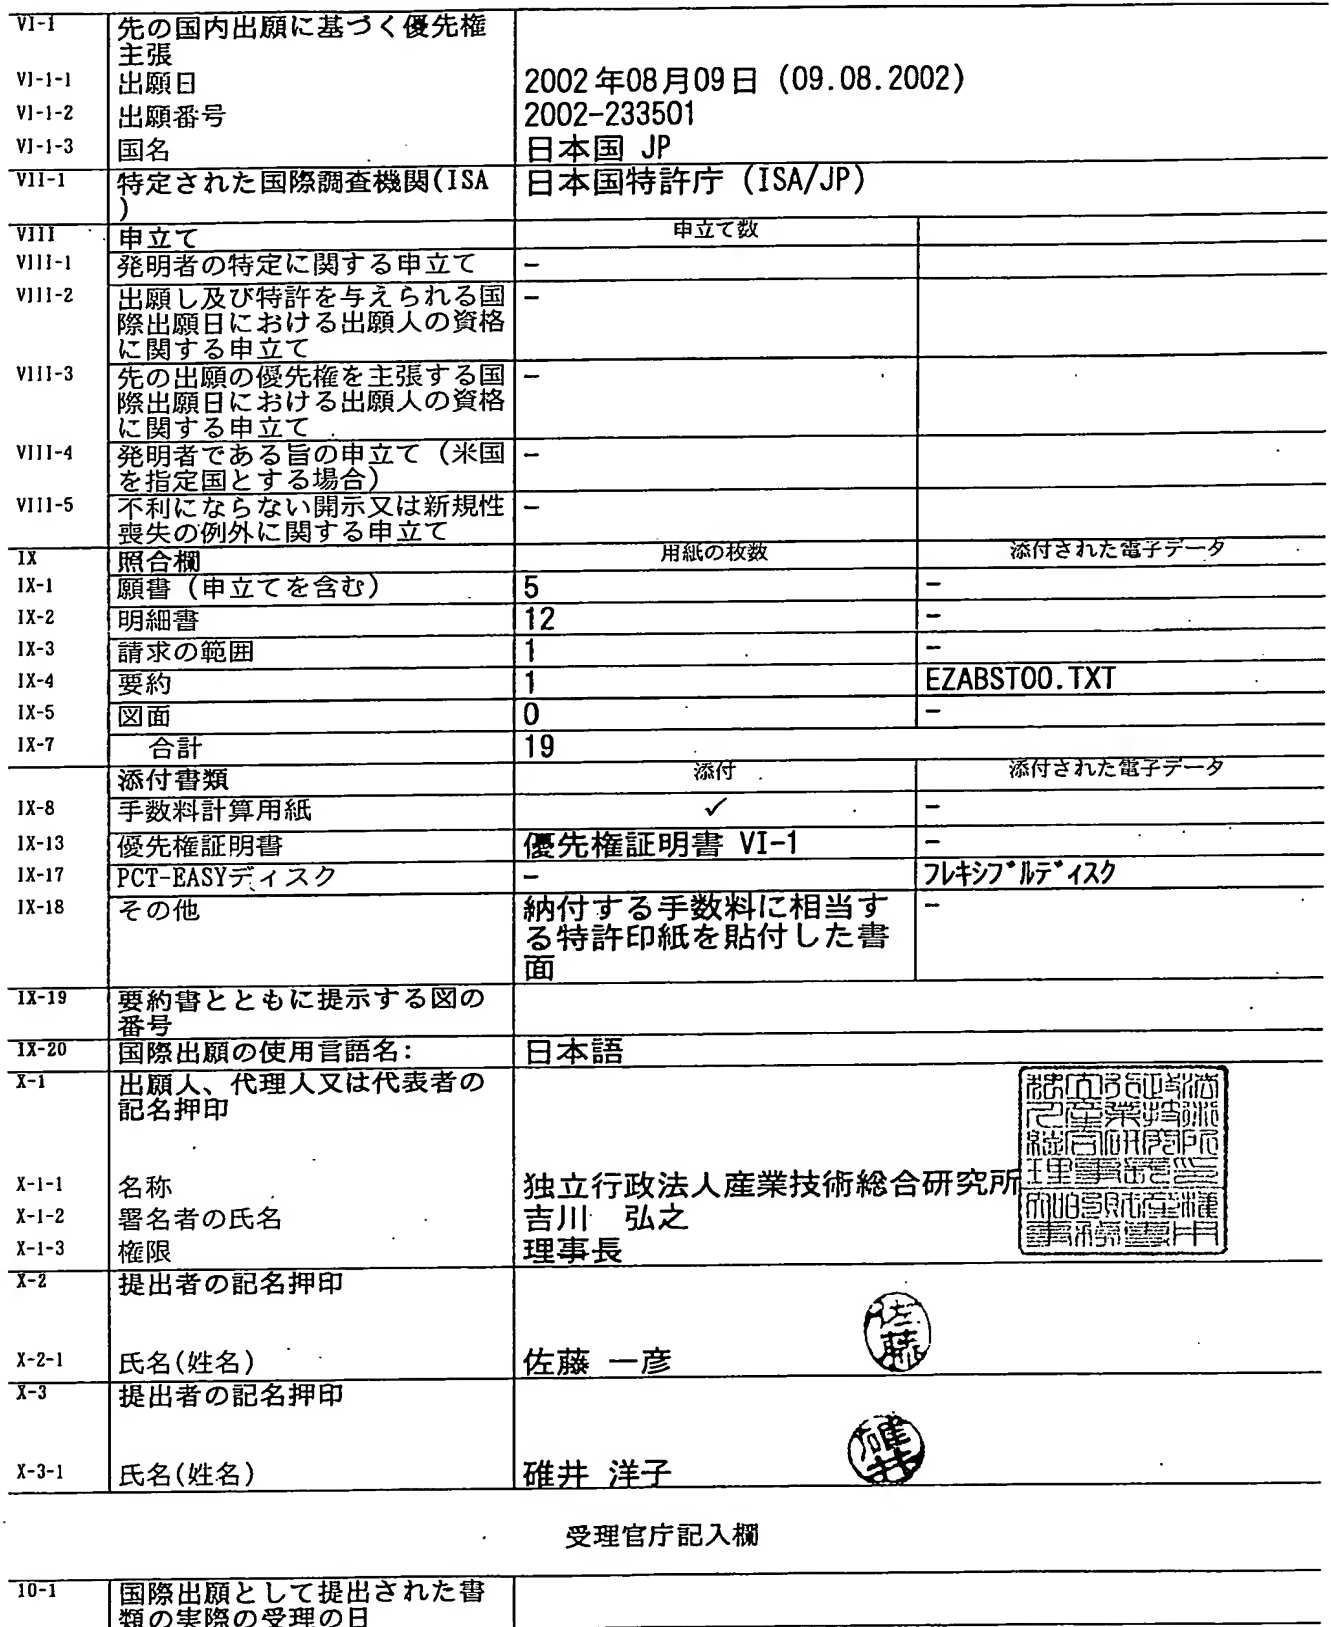 VI-1 先の国内出願に基づく優先権
主張
VI-1-1 出願日 2002年08月09日 (09.08.2002)
VI-1-2 出願番号 2002-233501
VI-1-3 国名 日本国 JP
VII-1 特定された国際調査機関(ISA 日本国特許庁 (ISA/JP)
)
VIII 申立て 申立て数
VIII-1 発明者の特定に関する申立て -
VIII-2 出願し及び特許を与えられる国 -
際出願日における出願人の資格
に関する申立て
VIII-3 先の出願の優先権を主張する国 -
際出願日における出願人の資格
に関する申立て
VIII-4 発明者である旨の申立て (米国 -
を指定国とする場合)
VIII-5 不利にならない開示又は新規性 -
喪失の例外に関する申立て
IX 照合欄 用紙の枚数 添付された電子データ
IX-1 願書 (申立てを含む) 5 -
IX-2 明細書 12 -
IX-3 請求の範囲 1 -
IX-4 要約 1 EZABST00.TXT
IX-5 図面 0 -
IX-7 合計 19
添付書類 添付 添付された電子データ
IX-8 手数料計算用紙 ✓ -
IX-13 優先権証明書 優先権証明書 VI-1 -
IX-17 PCT-EASYディスク - フレキシブルディスク
IX-18 その他 納付する手数料に相当す -
る特許印紙を貼付した書
面
IX-19 要約書とともに提示する図の
番号
IX-20 国際出願の使用言語名: 日本語
X-1 出願人、代理人又は代表者の
記名押印
X-1-1 名称 独立行政法人産業技術総合研究所
X-1-2 署名者の氏名 吉川 弘之
X-1-3 権限 理事長
X-2 提出者の記名押印
佐藤
X-2-1 氏名(姓名) 佐藤 一彦
X-3 提出者の記名押印
碓井
X-3-1 氏名(姓名) 碓井 洋子
受理官庁記入欄
10-1 国際出願として提出された書
類の実際の受理の日